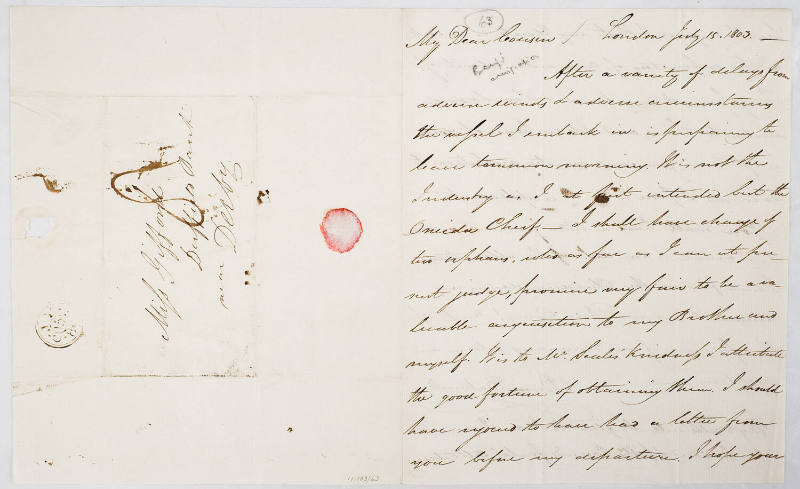 Miss Giffard
Duffield Bank
near Derby
63
My Dear Cousin / London July 15. 1803. —
After a variety of delays from
adverse winds & adverse circumstances
the vessel I embark in is preparing to
leave tomorrow morning. It is not the
Industry as I at first intended but the
Oneida Cheif. — I shall have charge of
two orphans, who as far as I can at pre
sent judge, promise very fair to be a va
luable acquisition to my Brother and
myself. It is to Mr. Kindness I attribute
the good fortune of obtaining them. I should
have rejoiced to have had a letter from
you before my departure. I hope your